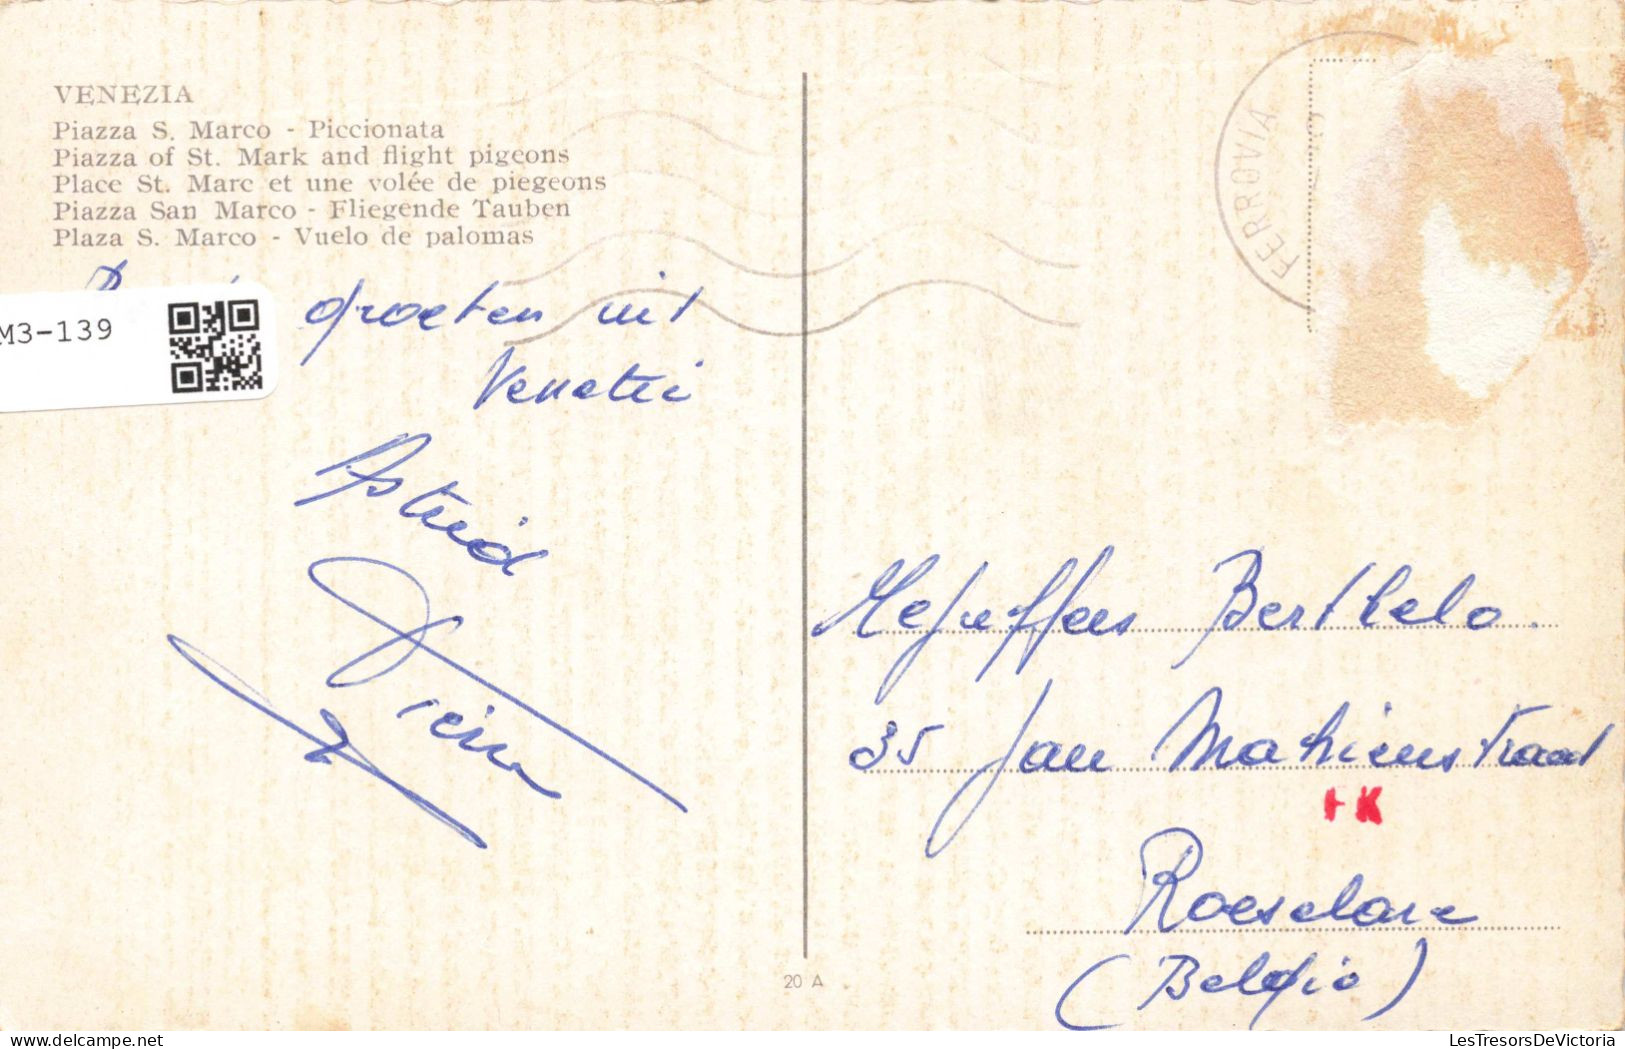 VENEZIA
Piazza S. Marco - Piccionata
Piazza of St. Mark and flight pigeons
Place St. Marc et une volée de piegeons
Piazza San Marco - Fliegende Tauben
Plaza S. Marco - Vuelo de palomas
M3-139
groeten uit
Venetië
Astrid
FERROVIA
Berthelo
35 Jan Mahieustraat
Roeselare
(Belgio)
20 A
LesTresorsDeVictoria